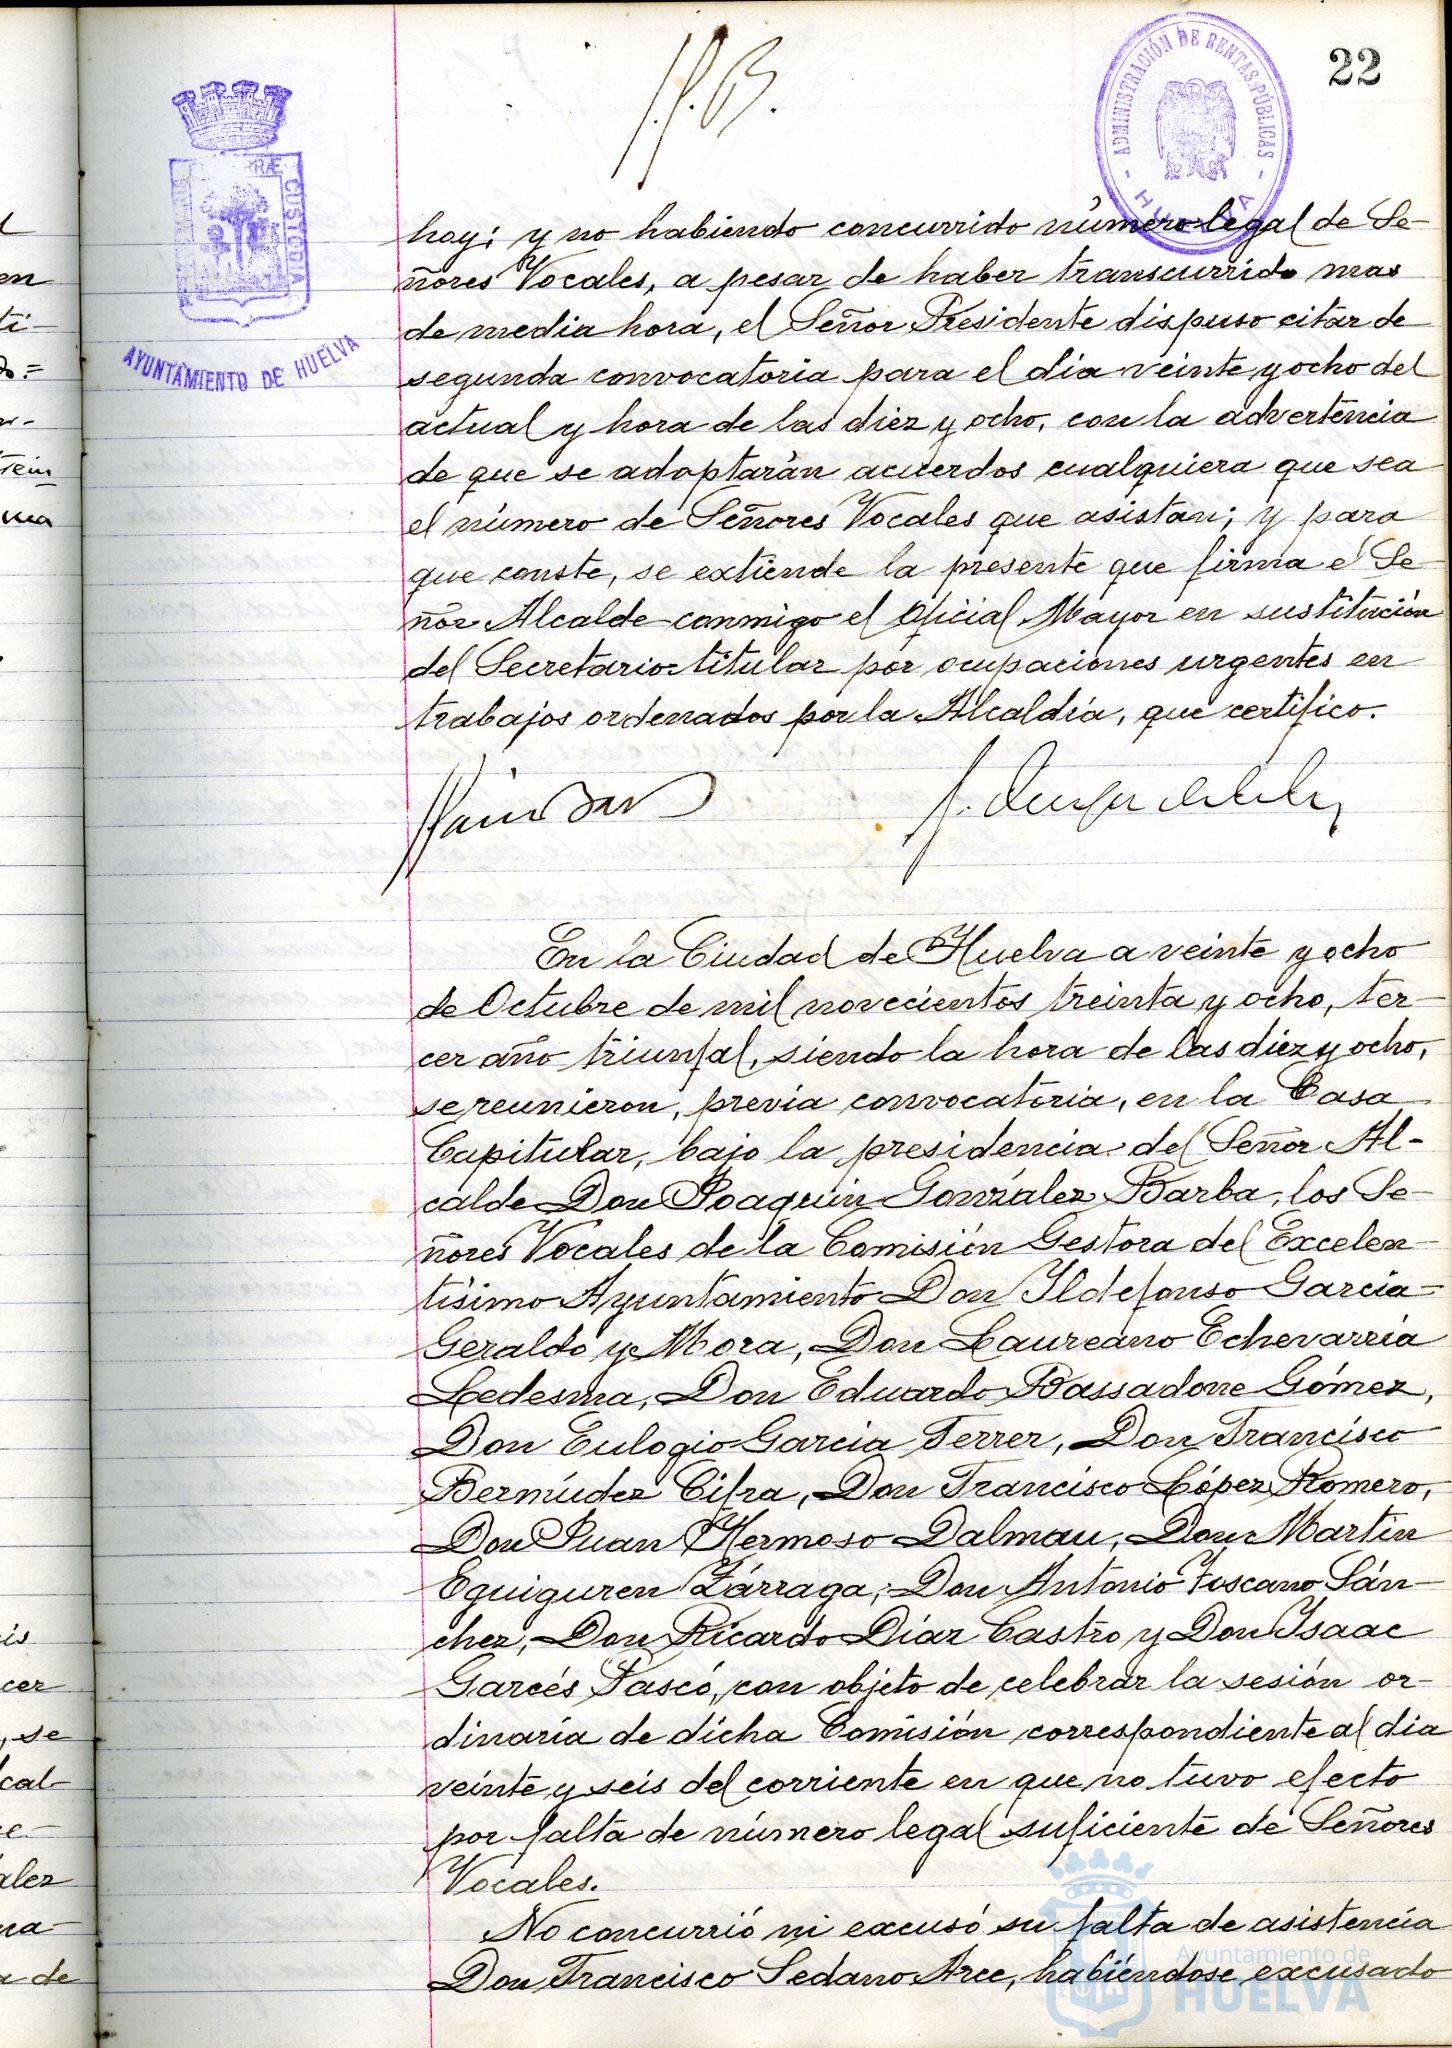 22
ADMINISTRACIÓN DE RENTAS PÚBLICAS
HUELVA
CUSTODIA
AYUNTAMIENTO DE HUELVA
hoy; y no habiendo concurrido número legal de Se-
ñores Vocales, a pesar de haber transcurrido mas
de media hora, el Señor Presidente dispuso citar de
segunda convocatoria para el día veinte y ocho del
actual y hora de las diez y ocho, con la advertencia
de que se adoptarán acuerdos cualquiera que sea
el número de Señores Vocales que asistan; y para
que conste, se extiende la presente que firma el Se-
ñor Alcalde conmigo el Oficial Mayor en sustitución
del Secretario titular por ocupaciones urgentes en
trabajos ordenados por la Alcaldía, que certifico.
En la Ciudad de Huelva a veinte y ocho
de Octubre de mil novecientos treinta y ocho, ter-
cer año triunfal, siendo la hora de las diez y ocho,
se reunieron, previa convocatoria, en la Casa
Capitular, bajo la presidencia del Señor Al-
calde Don Joaquín González Barba, los Se-
ñores Vocales de la Comisión Gestora del Excelen-
tísimo Ayuntamiento Don Ildefonso García-
Geraldo y Mora, Don Laureano Echevarría
Ledesma, Don Eduardo Bassadone Gómez,
Don Eulogio García Ferrer, Don Francisco
Bermúdez Cifra, Don Francisco López Romero,
Don Juan Hermoso Dalmau, Don Martín
Eguiguren Zárraga, Don Antonio Toscano Sán-
chez, Don Ricardo Díaz Castro y Don Isaac
Garcés Pascó, con objeto de celebrar la sesión or-
dinaria de dicha Comisión correspondiente al día
veinte y seis del corriente en que no tuvo efecto
por falta de número legal suficiente de Señores
Vocales.
No concurrió ni excusó su falta de asistencia
Don Francisco Sedano Arce, habiéndose excusado
Ayuntamiento de
HUELVA